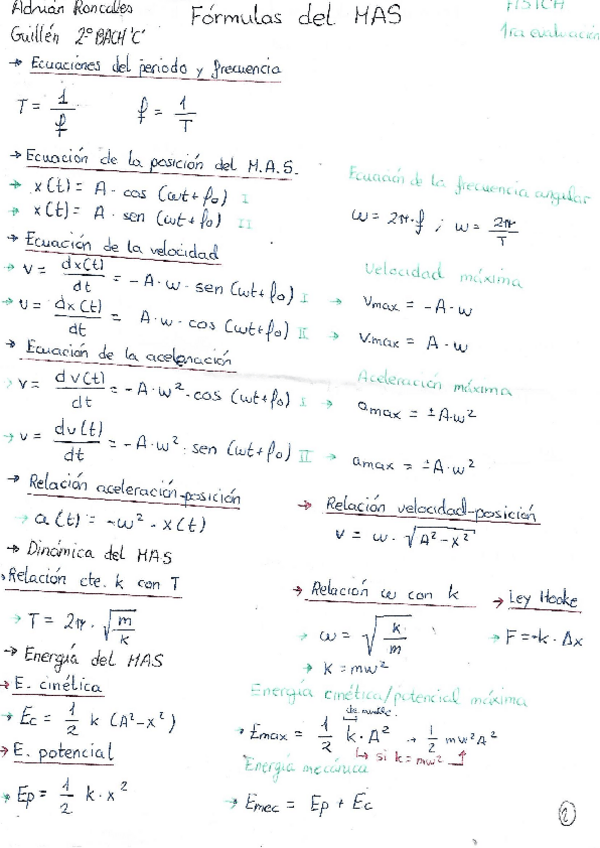 Adrián Roncalles
Guillén 2º BACH 'C'
Fórmulas del MAS
FISICA
1ra evaluación
→ Ecuaciones del periodo y frecuencia
T = 1/f    f = 1/T
→ Ecuación de la posición del M.A.S.
→ x(t) = A · cos (ωt + φ0) I
→ x(t) = A · sen (ωt + φ0) II
Ecuación de la frecuencia angular
ω = 2π·f ; ω = 2π/T
→ Ecuación de la velocidad
→ v = dx(t)/dt = -A·w·sen (ωt + φ0) I
→ v = dx(t)/dt = A·w·cos (ωt + φ0) II
Velocidad máxima
→ Vmax = -A·w
→ Vmax = A·w
→ Ecuación de la aceleración
→ v = dv(t)/dt = -A·w²·cos (ωt + φ0) I
→ v = dv(t)/dt = -A·w²·sen (ωt + φ0) II
Aceleración máxima
→ amax = ±A·w²
→ amax = ±A·w²
→ Relación aceleración-posición
→ a(t) = -w² · x(t)
→ Relación velocidad-posición
v = w · √(A² - x²)
→ Dinámica del MAS
→ Relación cte. k con T
→ T = 2π · √(m/k)
→ Relación ω con k
→ ω = √(k/m)
→ K = mw²
→ Ley Hooke
→ F = -k · Δx
→ Energía del MAS
→ E. cinética
→ Ec = 1/2 k (A² - x²)
→ E. potencial
→ Ep = 1/2 k · x²
Energía cinética/potencial máxima
de muelle.
→ Emax = 1/2 k · A² → 1/2 mw²A²
↳ si k = mw² ↑
Energía mecánica
→ Emec = Ep + Ec
2